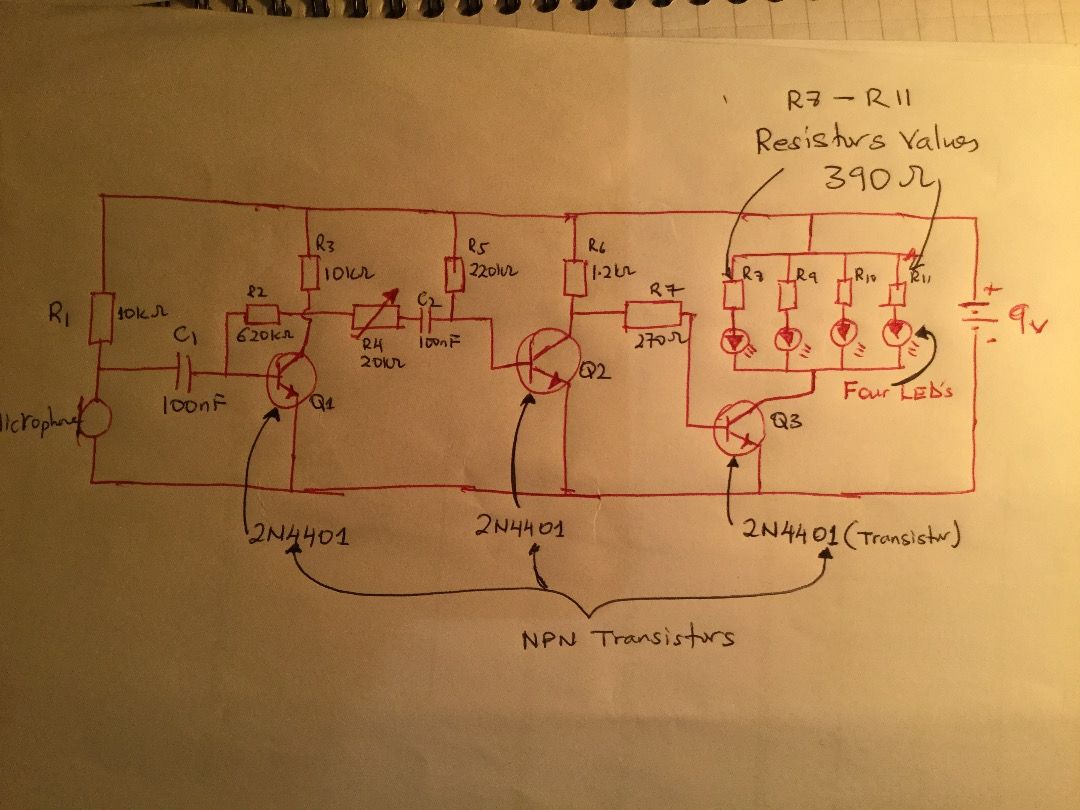 R7 - R11
Resistors Values
390Ω
R1
10kΩ
C1
100nF
Microphone
R2
620kΩ
R3
10kΩ
Q1
R4
20kΩ
C2
100nF
R5
220kΩ
R6
1.2kΩ
Q2
R7
270Ω
R7
R9
R10
R11
Four LED's
Q3
+
9v
-
2N4401
2N4401
2N4401 (Transistor)
NPN Transistors